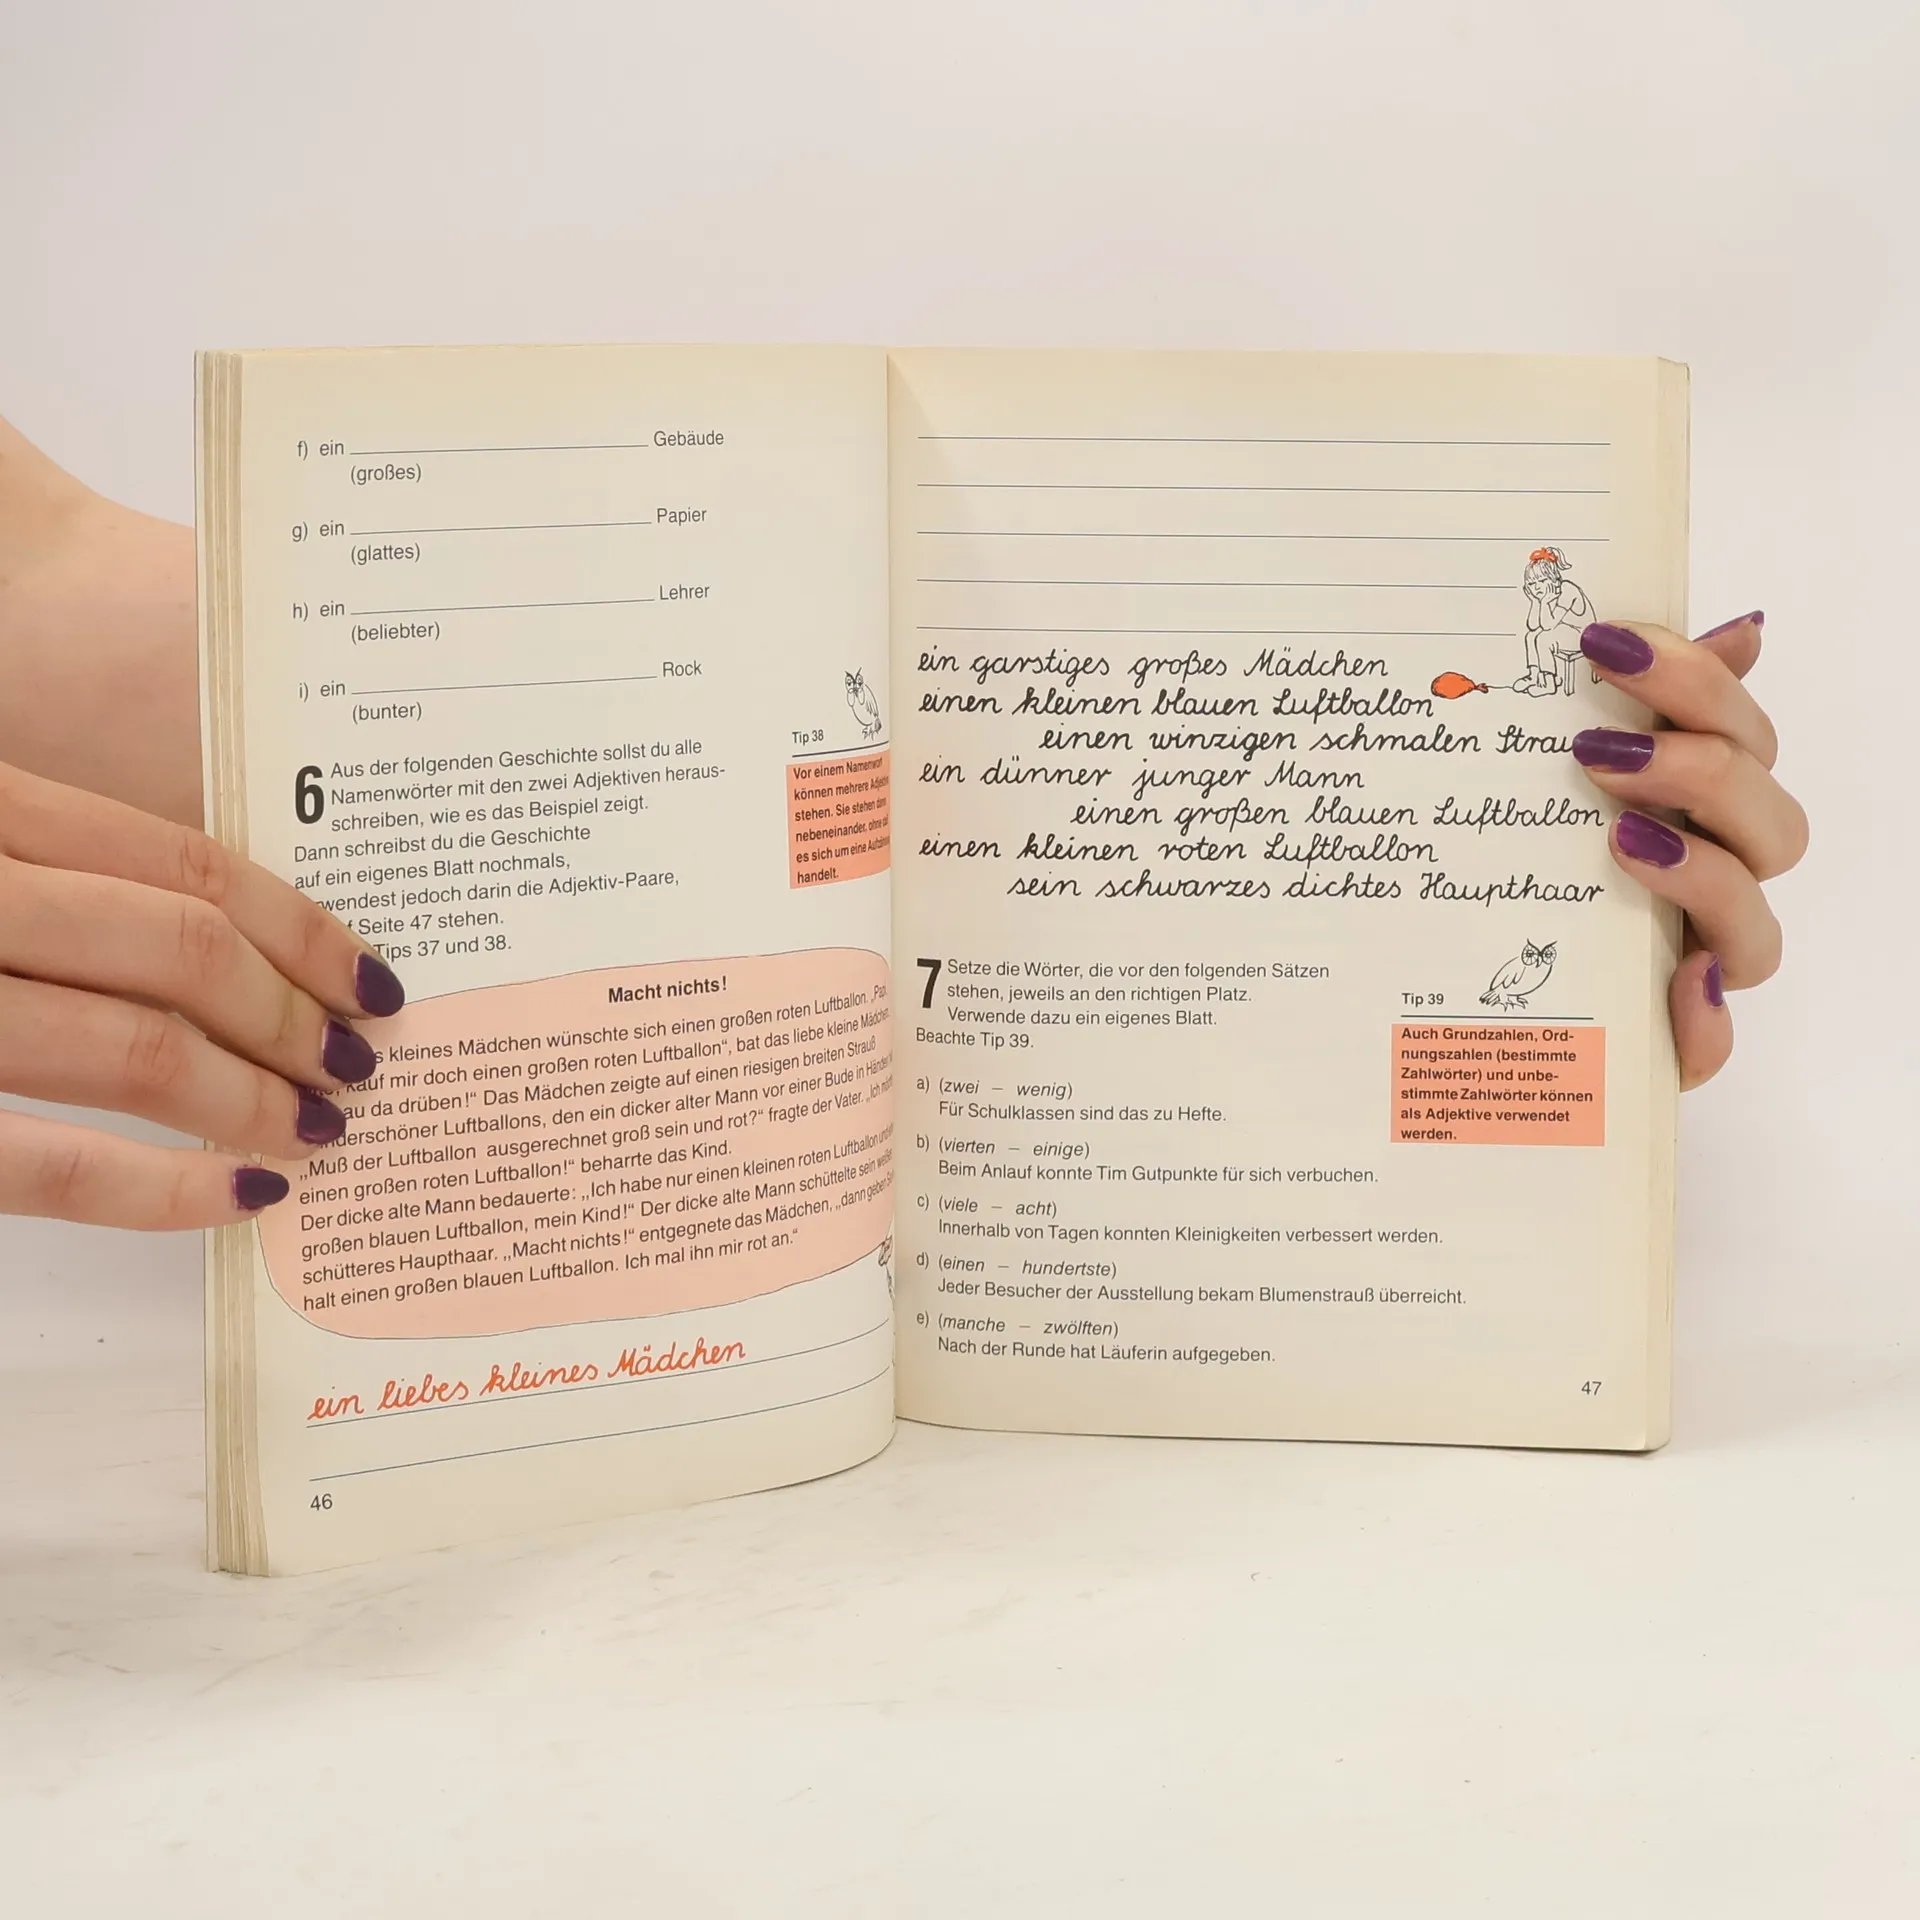 f) ein Gebäude
(großes)
g) ein Papier
(glattes)
h) ein Lehrer
(beliebter)
i) ein Rock
(bunter)
6 Aus der folgenden Geschichte sollst du alle
Namenwörter mit den zwei Adjektiven heraus-
schreiben, wie es das Beispiel zeigt.
Dann schreibst du die Geschichte
auf ein eigenes Blatt nochmals,
wendest jedoch darin die Adjektiv-Paare,
f Seite 47 stehen.
Tips 37 und 38.
Tip 38
Vor einem Namenwort
können mehrere Adjektive
stehen. Sie stehen dann
nebeneinander, ohne
es sich um eine
handelt.
Macht nichts!
s kleines Mädchen wünschte sich einen großen roten Luftballon.
kauf mir doch einen großen roten Luftballon“, bat das liebe kleine Mädchen.
au da drüben!“ Das Mädchen zeigte auf einen riesigen breiten Strauß
nderschöner Luftballons, den ein dicker alter Mann vor einer Bude in
„Muß der Luftballon ausgerechnet groß sein und rot?“ fragte der Vater. „Ich
einen großen roten Luftballon!“ beharrte das Kind.
Der dicke alte Mann bedauerte: „Ich habe nur einen kleinen roten Luftballon und
großen blauen Luftballon, mein Kind!“ Der dicke alte Mann schüttelte sein
schütteres Haupthaar. „Macht nichts!“ entgegnete das Mädchen, „dann geben
halt einen großen blauen Luftballon. Ich mal ihn mir rot an.“
ein liebes kleines Mädchen
46
ein garstiges großes Mädchen
einen kleinen blauen Luftballon
einen winzigen schmalen Strau
ein dünner junger Mann
einen großen blauen Luftballon
einen kleinen roten Luftballon
sein schwarzes dichtes Haupthaar
7 Setze die Wörter, die vor den folgenden Sätzen
stehen, jeweils an den richtigen Platz.
Verwende dazu ein eigenes Blatt.
Beachte Tip 39.
Tip 39
Auch Grundzahlen, Ord-
nungszahlen (bestimmte
Zahlwörter) und unbe-
stimmte Zahlwörter können
als Adjektive verwendet
werden.
a) (zwei – wenig)
Für Schulklassen sind das zu Hefte.
b) (vierten – einige)
Beim Anlauf konnte Tim Gutpunkte für sich verbuchen.
c) (viele – acht)
Innerhalb von Tagen konnten Kleinigkeiten verbessert werden.
d) (einen – hundertste)
Jeder Besucher der Ausstellung bekam Blumenstrauß überreicht.
e) (manche – zwölften)
Nach der Runde hat Läuferin aufgegeben.
47